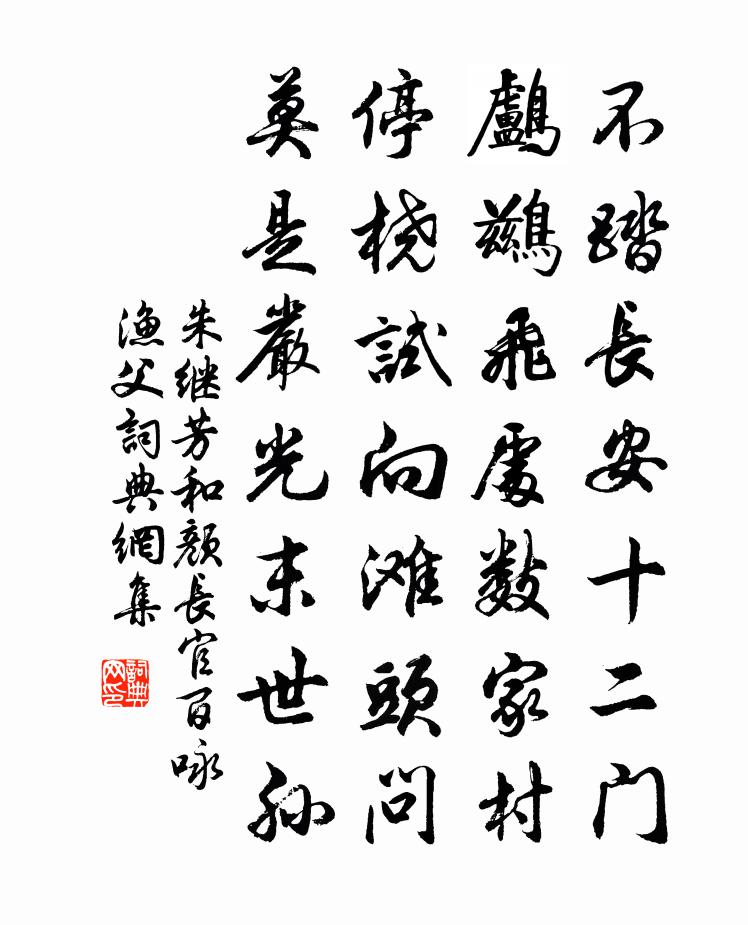 不踏長安十二门
鸕鷀飛處数家村
停桡試向滩頭問
莫是嚴光末世孙
朱继芳和颜長官百咏
渔父詞典網集
詞典网印